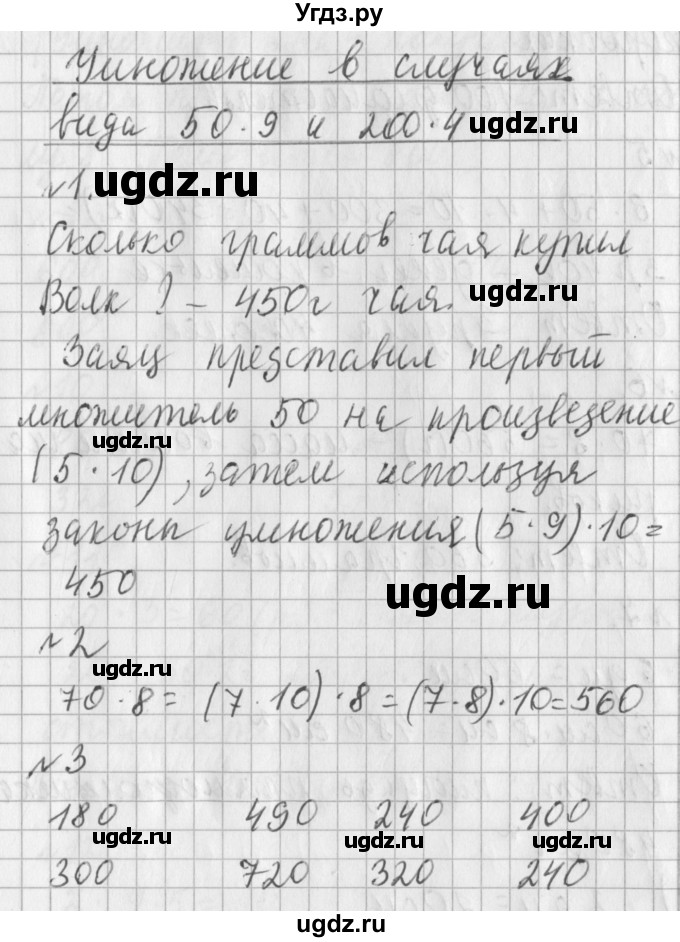 Угдз.ру
Умножение в случаях
вида 50·9 и 200·4 ugdz.ru
№1. ugdz.ru
Сколько граммов чая купил
Волк? – 450г чая. ugdz.ru
Заяц представил первый
множитель 50 на произведение
ugdz.ru
(5·10), затем используя
законы умножения (5·9)·10=
450 ugdz.ru
№2
ugdz.ru
70·8= (7·10)·8=(7·8)·10=560
№3
180 490 240 400
ugdz.ru ugdz.ru ugdz.ru
300 720 320 240
ugdz.ru